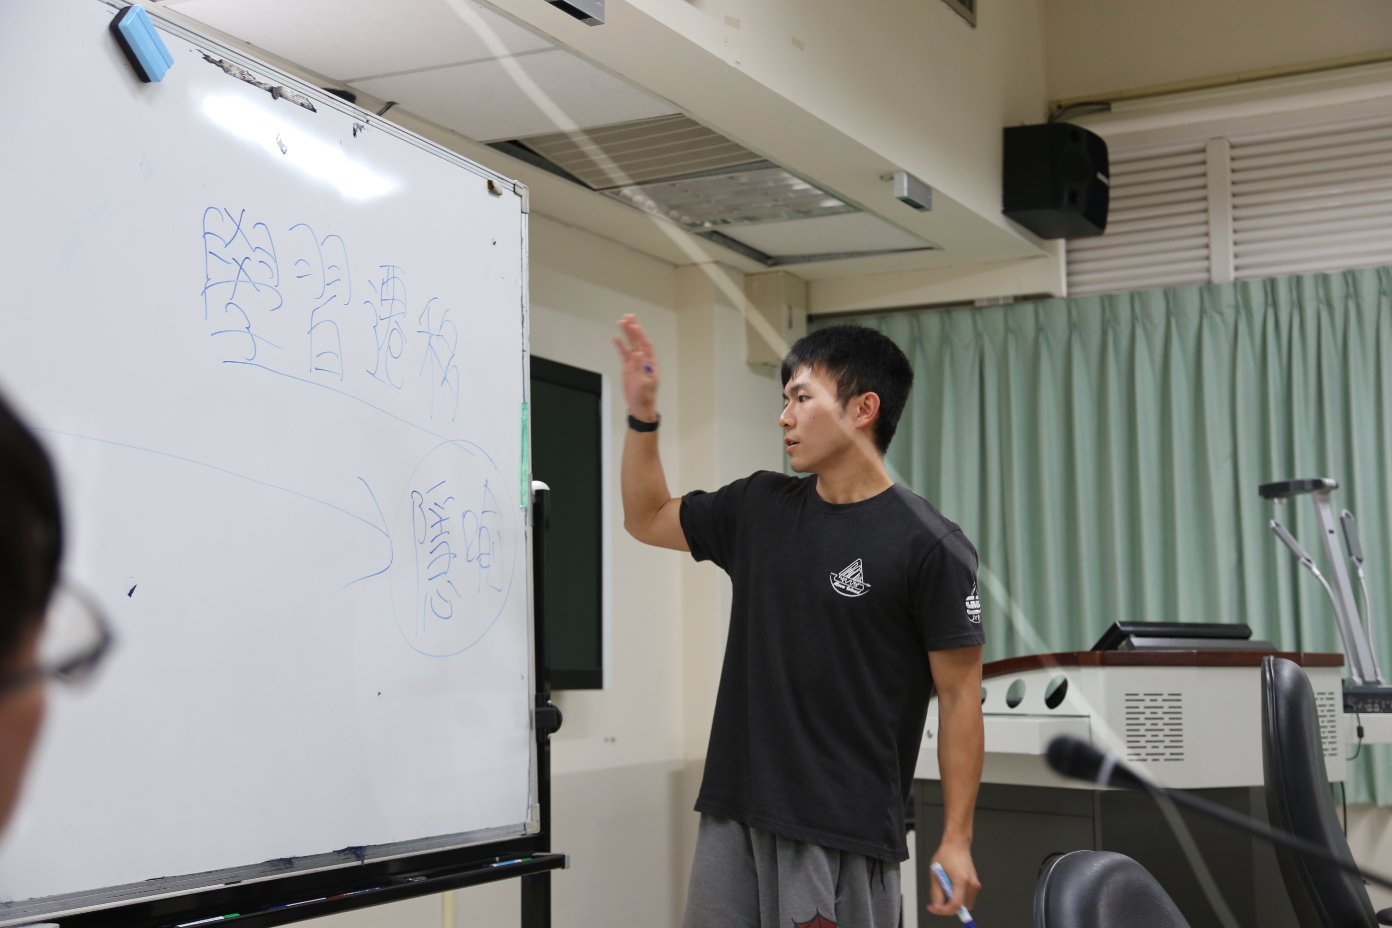 學習遷移
隱喻